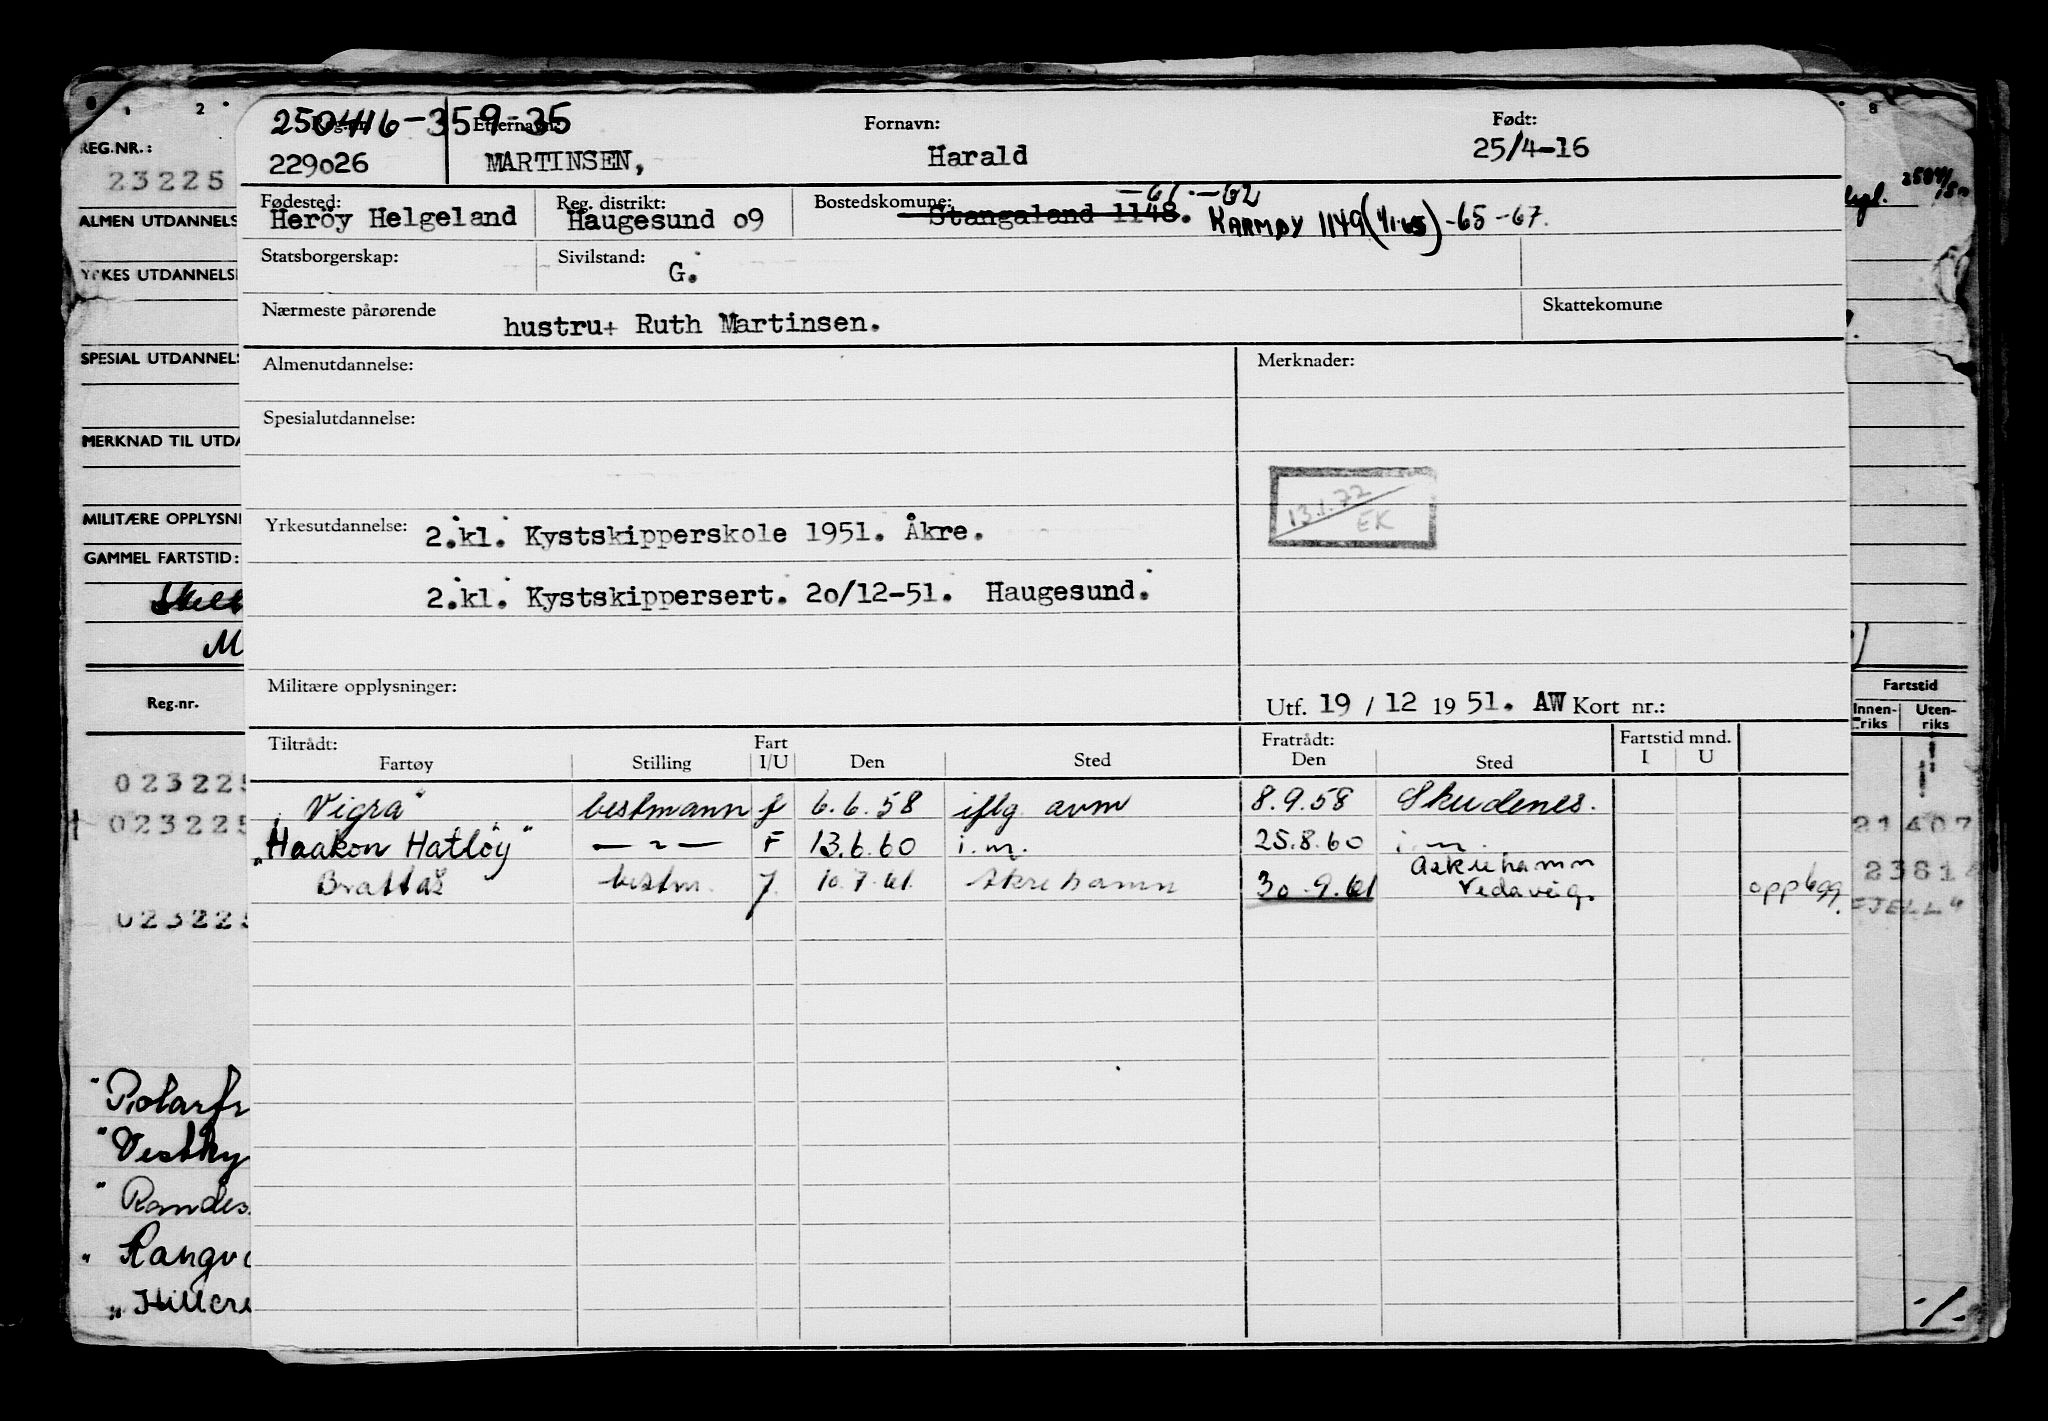 250416-359-35
Reg.nr. Etternavn: Fornavn: Født:
229026 MARTINSEN, Harald 25/4-16
-61.-62
Fødested: Reg. distrikt: Bostedskomune:
Heröy Helgeland Haugesund 09 Stangaland 1148. KARMØY 1149 (1/1 65) -65 -67.
Statsborgerskap: Sivilstand: G.
Nærmeste pårørende hustru+ Ruth Martinsen. Skattekomune
Almenutdannelse: Merknader:
Spesialutdannelse:
13.1.72
EK
Yrkesutdannelse: 2.kl. Kystskipperskole 1951. Åkre.
2.kl. Kystskippersert. 20/12-51. Haugesund.
Militære opplysninger:
Utf. 19 / 12 19 51. AW Kort nr.:
Tiltrådt: Fart Fratrådt: Fartstid mnd.
Fartøy Stilling I/U Den Sted Den Sted I U
"Vigra" bestmann f 6.6.58 iflg avm 8.9.58 Skudenes.
"Haakon Hatløy" — " — F 13.6.60 i.m. 25.8.60 i.m.
Brattås bestm. f. 10.7.61. Åkrehamn 30.9.61 Åkrehamn Vedavåg. opplegg.
1 2 8
REG.NR.:
23225
ALMEN UTDANNELS
YRKES UTDANNELS
SPESIAL UTDANNELS
MERKNAD TIL UTDA
MILITÆRE OPPLYSNI
GAMMEL FARTSTID:
M
Reg.nr.
023225
023225
023225
"Polarfr
"Vestky
"Randes
"Rangv
"Hillcre
Fartstid
Innen-riks Uten-riks
21407
23814
FJELL"
-/-